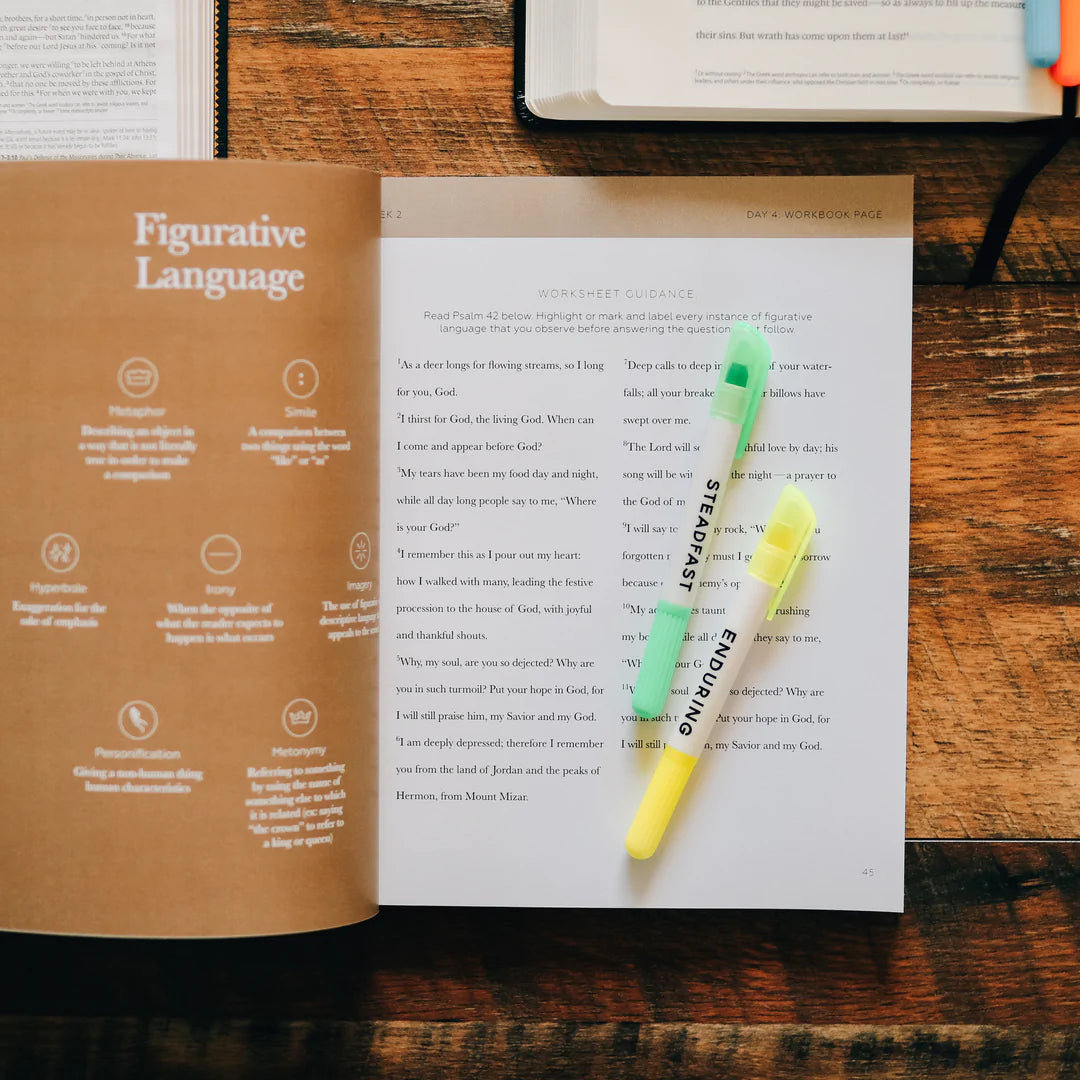 brothers, for a short time, ⁷in person not in heart,
th great desire ⁷to see you face to face, ¹⁸because
and again—but Satan ⁷hindered us. ¹⁹For what
⁷before our Lord Jesus at his ⁷coming? Is it not
onger, we were willing ⁷to be left behind at Athens
other and God's coworker ⁷in the gospel of Christ,
³that no one be moved by these afflictions. For
ed for this. ⁴For when we were with you, we kept
to the Gentiles that they might be saved—so as always to fill up the measure
their sins. But wrath has come upon them at last!
Figurative
Language
Metaphor
Describing an object in
a way that is not literally
true in order to make
a comparison
Simile
A comparison between
two things using the word
"like" or "as"
Hyperbole
Exaggeration for the
sake of emphasis
Irony
When the opposite of
what the reader expects to
happen is what occurs
Imagery
The use of
descriptive
appeals to the
Personification
Giving a non-human thing
human characteristics
Metonymy
Referring to something
by using the name of
something else to which
it is related (ex: saying
"the crown" to refer to
a king or queen)
EK 2
DAY 4: WORKBOOK PAGE
WORKSHEET GUIDANCE
Read Psalm 42 below. Highlight or mark and label every instance of figurative
language that you observe before answering the question t follow.
¹As a deer longs for flowing streams, so I long
for you, God.
²I thirst for God, the living God. When can
I come and appear before God?
³My tears have been my food day and night,
while all day long people say to me, "Where
is your God?"
⁴I remember this as I pour out my heart:
how I walked with many, leading the festive
procession to the house of God, with joyful
and thankful shouts.
⁵Why, my soul, are you so dejected? Why are
you in such turmoil? Put your hope in God, for
I will still praise him, my Savior and my God.
⁶I am deeply depressed; therefore I remember
you from the land of Jordan and the peaks of
Hermon, from Mount Mizar.
⁷Deep calls to deep in of your water-
falls; all your breake r billows have
swept over me.
⁸The Lord will se thful love by day; his
song will be wit the night—a prayer to
the God of m
⁹I will say to y rock, "W u
forgotten must I g orrow
because emy's op
¹⁰My a es taunt rushing
my b ile all d they say to me,
"Wh our G
¹¹W soul so dejected? Why are
you in such t Put your hope in God, for
I will still p m, my Savior and my God.
STEADFAST
ENDURING
45